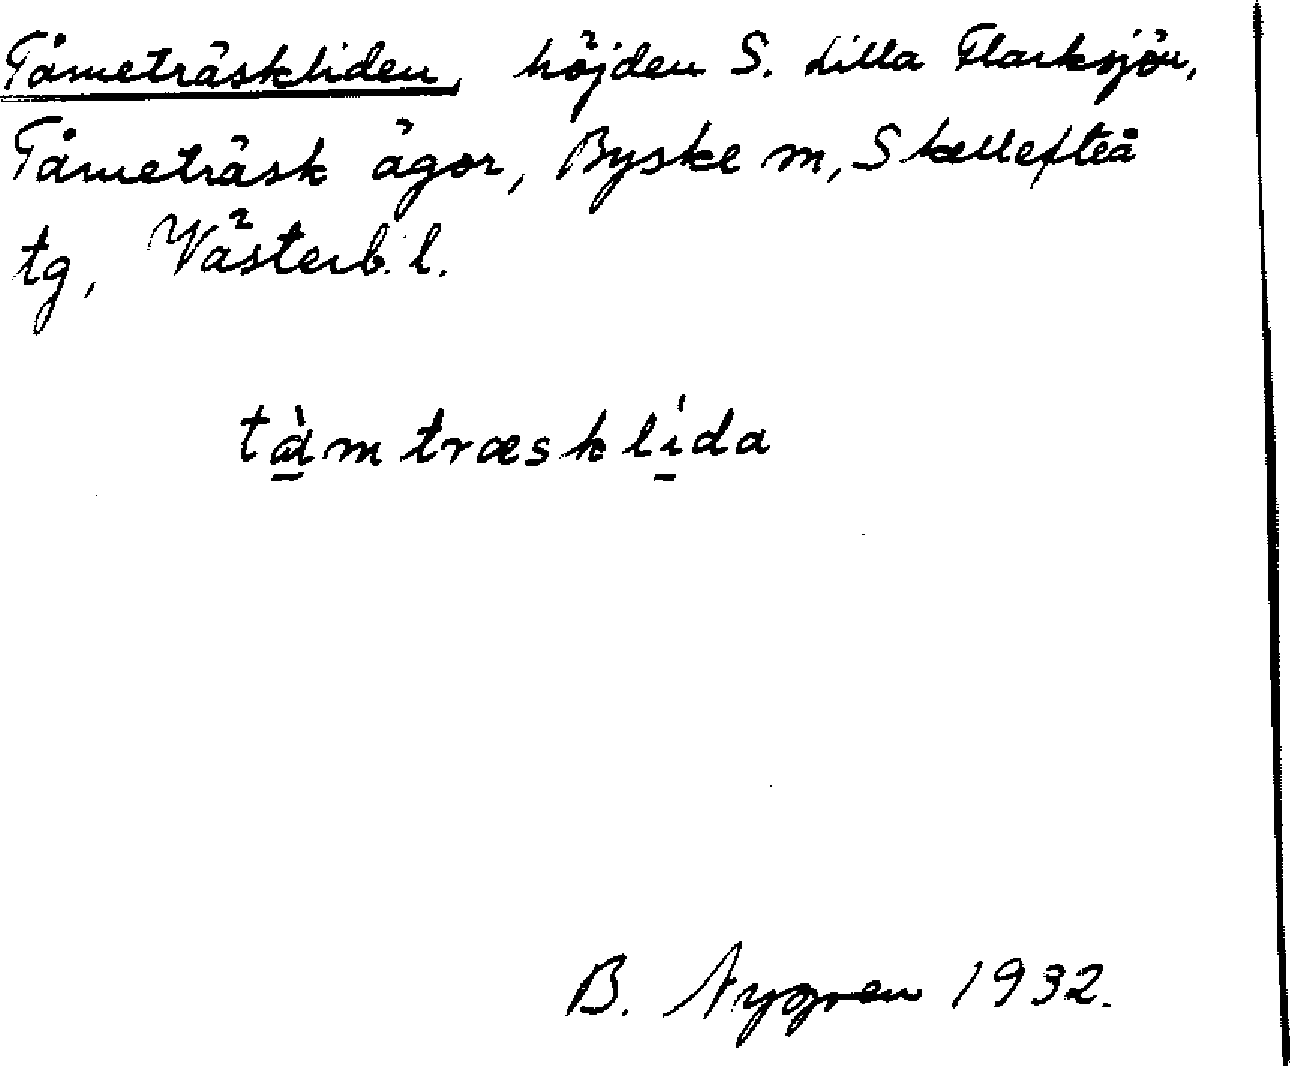 Tåmeträskliden, höjden S. Lilla Flarksjön,
Tåmeträsk ägor, Byske m, Skellefteå
tg, Västerb. l.
tàmtræsklída
B. Nygren 1932.